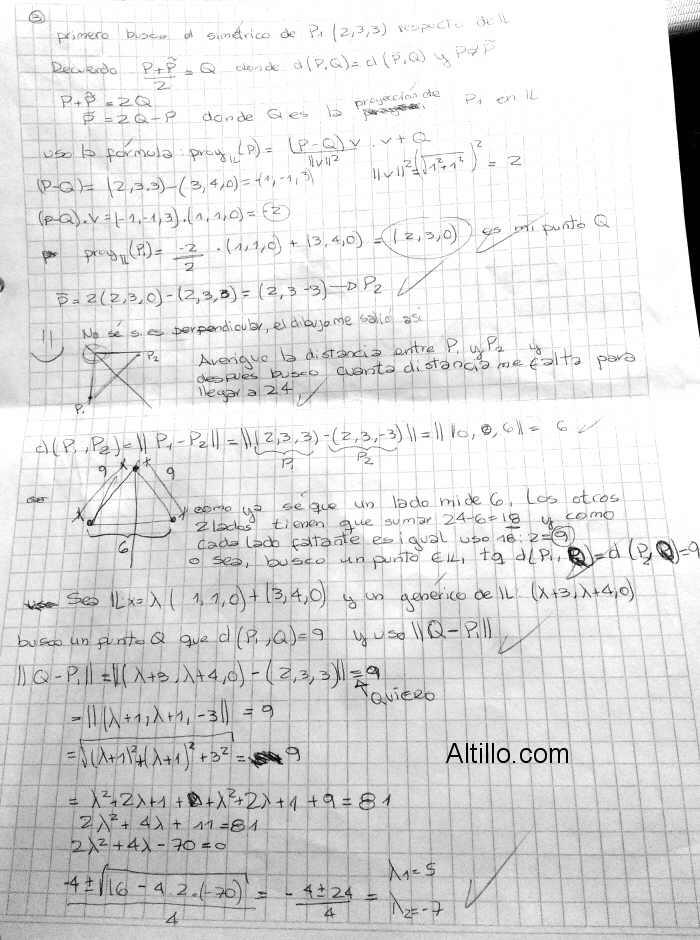 ③
primero busco el simétrico de P₁ (2,3,3) respecto de IL
Recuerdo (P+P̃)/2 = Q donde d(P,Q)=d(P̃,Q) y P≠P̃
P+P̃ = 2Q
P̃ = 2Q-P donde Q es la proyección de P₁ en IL
uso la fórmula: proy_IL(P) = ((P-Q).v)/||v||² . v + Q
(P-Q) = (2,3,3)-(3,4,0) = (-1,-1,3) ||v||² = (√(1²+1²))² = 2
(P-Q).v = (-1,-1,3).(1,1,0) = -2
proy_IL(P₁) = -2/2 . (1,1,0) + (3,4,0) = (2,3,0) es mi punto Q
P̃ = 2(2,3,0)-(2,3,3) = (2,3-3) → P₂
No sé si es perpendicular, el dibujo me salió así
P₂
P₁
Averiguo la distancia entre P₁ y P₂ y
después busco cuanta distancia me falta para
llegar a 24
d(P₁,P₂) = ||P₁-P₂|| = ||(2,3,3)-(2,3,-3)|| = ||(0,0,6)|| = 6
P₁ P₂
9 9
6
como ya sé que un lado mide 6, Los otros
2 lados tienen que sumar 24-6=18 y como
cada lado faltante es igual uso 18:2=9
o sea, busco un punto ∈ IL, tq d(P₁,Q)=d(P₂,Q)=9
Sea IL x=λ(1,1,0)+(3,4,0) y un genérico de IL (λ+3,λ+4,0)
busco un punto Q que d(P₁,Q)=9 y uso ||Q-P₁||
||Q-P₁|| = ||(λ+3,λ+4,0)-(2,3,3)|| = 9
QUIERO
= ||(λ+1,λ+1,-3)|| = 9
= √((λ+1)²+(λ+1)²+3²) = 9
Altillo.com
= λ²+2λ+1+λ²+2λ+1+9 = 81
2λ²+4λ+11=81
2λ²+4λ-70=0
(-4±√(16-4.2.(-70)))/4 = -4±24/4 = λ₁=5
λ₂=-7